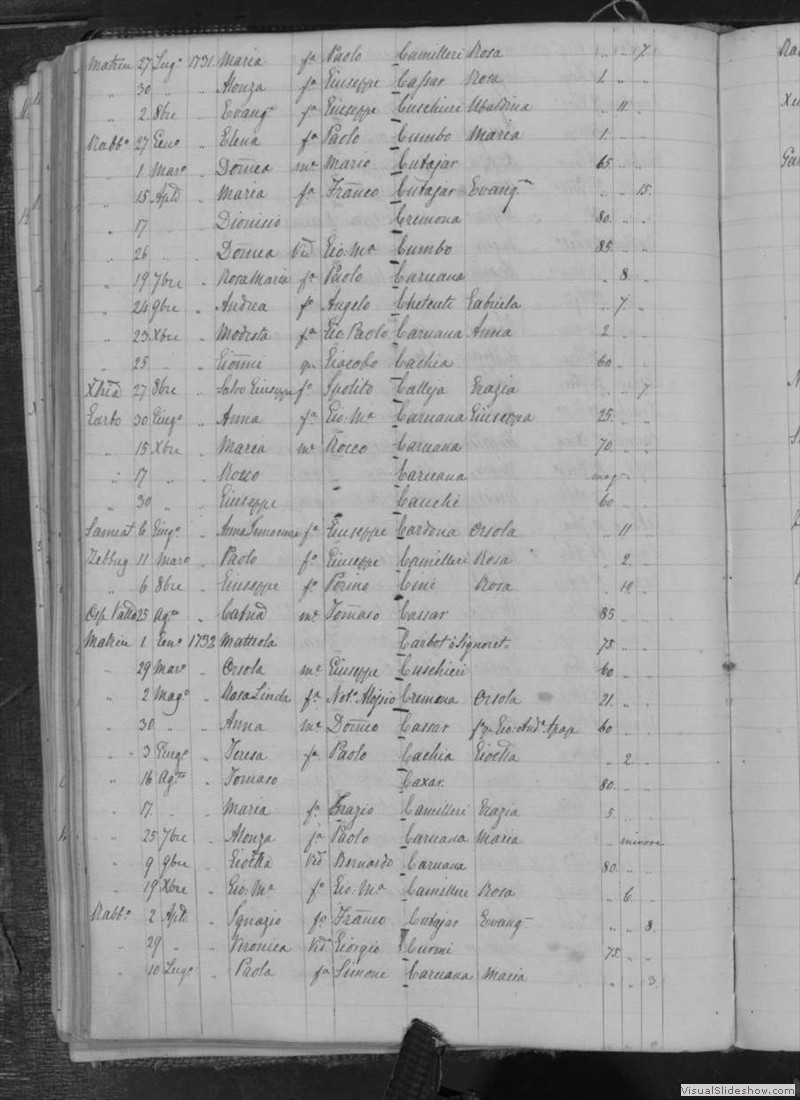 Matrice 27 Lugo 1731. Maria fa Paolo Camilleri Rosa " " 7.
" 30 " " Alonza fa Giuseppe Cassar Rosa 1. " "
" 2 8bre " Evanga fa Giuseppe Cuschieri Ubaldina " 11 "
Rabbo 27 Geno " Elena fa Paolo Cumbo Maria 1. " "
" 1 Maro " Domca me Mario Cutajar 65 " "
" 15 Aple " Maria fa Franco Cutajar Evanga " " 15.
" 17 " " Dionisio Cremona 80. " "
" 26 " Domca Vid Gio: Ma Cumbo 85. " "
" 19 7bre " Rosa Maria fa Paolo Caruana " 8 "
" 24 9bre " Andrea fo Angelo Chetcuti Gabriela " 7. "
" 23 Xbre " Modesta fa Gio Paolo Caruana Anna 2 " "
" 25 " " Gionni Giacobo Cachia 60 " "
27 8bre " Salvo Giuseppe fo Ipolito Calleja Grazia " " 7
30 Giugo " Anna fa Gio: Ma Caruana Giuseppa 25. " "
" 15 Xbre " Marea me Rocco Caruana 70. " "
" 17 " " Rocco " Caruana
" 30 " " Giuseppe " Cauchi 60 " "
Lameat 6 Giugo " fa Giuseppe Cardona Orsola " 11 "
Zebbug 11 Maro " Paolo fo Giuseppe Camilleri Rosa " 2. "
" 6 8bre " Giuseppe fo Porino Cini Rosa " 10 "
Osp. Valla 25 Ago " Catnd me Tomaso Cassar 85 " "
Matrice 1 Geno 1732 Matteola Carbot ò Signoret. 75 " "
" 29 Maro " Orsola me Giuseppe Cuschieri 60 " "
" 2 Mago " Rosa Linda fa Noto Aloisio Cremona Orsola 21. " "
" 30 " " Anna me Domco Cassar 60 " "
" 3 Giugo " Teresa fa Paolo Cachia Gioetta " 2 "
" 16 Ago " Tomaso Caxar. 80. " "
" 17. " " Maria fa Grazio Camilleri Grazia 5 " "
" 25 7bre " Alonza fa Paolo Caruana Maria " minore
" 9 9bre " Gioetta Vid Bernardo Caruana 80. " "
" 19 Xbre " Gio: Ma fo Gio: Ma Camilleri Rosa " 6 "
Rabbo 2 Aple " Ignazio fo Franco Cutajar Evanga " " 8.
" 29 " " Veronica Vid Giorgio Curmi 75. " "
" 10 Lugo " Paola fa Simone Caruana Maria " " 3.
VisualSlideshow.com